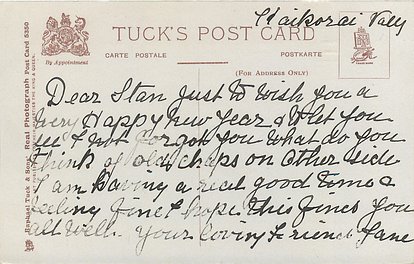 Kaikorai Vally
TUCK'S POST CARD
By Appointment
CARTE POSTALE
POSTKARTE
(FOR ADDRESS ONLY)
Dear Stan Just to wish you a
very Happy new year & let you
see I not forgot you what do you
think of old chaps on other side
I am having a real good time &
feeling fine I hope this fines you
all well. Your loving Friend Jane
Raphael Tuck & Sons' Real Photograph Post Card 5350